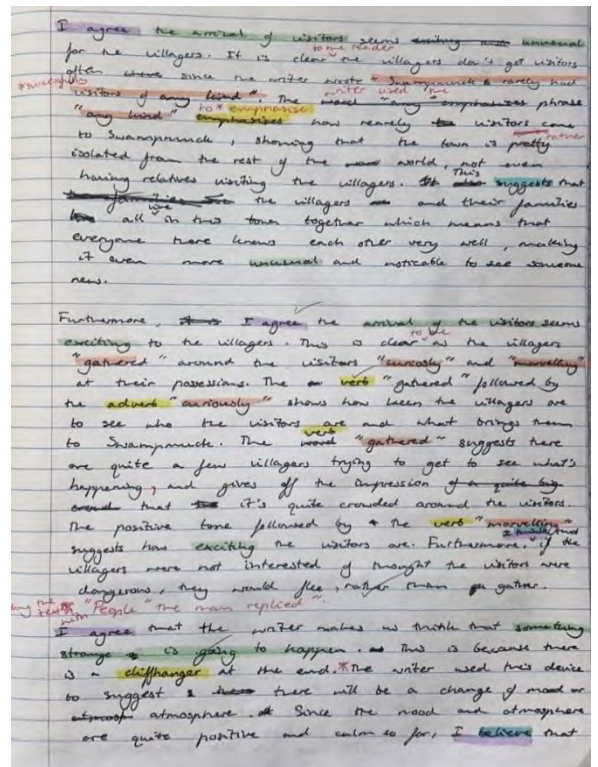 I agree the arrival of visitors seems exciting and unusual
for the villagers. It is clear to the reader the villagers don't get visitors
often since the writer wrote "Swampmuck rarely had
visitors of any kind". The writer used the phrase
"any kind" to emphasise how rearely visitors come
to Swampmuck, showing that the town is pretty rather
isolated from the rest of the world, not even
having relatives visiting the villagers. This suggests that
the villagers and their families
all live in this town together which means that
everyone there knows each other very well, making
it even more unusual and noticable to see someone
new.
Furthermore, I agree the arrival of the visitors seems
exciting to the villagers. This is clear to me as the villagers
"gathered" around the visitors "curiosly" and "marvelling"
at their possessions. The verb "gathered" followed by
the adverb "curiously" shows how keen the villagers are
to see who the visitors are and what brings them
to Swampmuck. The verb "gathered" suggests there
are quite a few villagers trying to get to see what's
happening, and gives off the impression of a quite big
crowd that it's quite crowded around the visitors.
The positive tone followed by the verb "marvelling"
suggests how exciting the visitors are. Furthermore, if the
villagers were not interested if thought the visitors were
dangerous, they would flee, rather than gather.
"People" the man replied"
I agree that the writer makes us think that something
strange is going to happen. This is because there
is a cliffhanger at the end. *The writer used this device
to suggest there will be a change of mood or
atmosphere. Since the mood and atmosphere
are quite positive and calm so far, I believe that